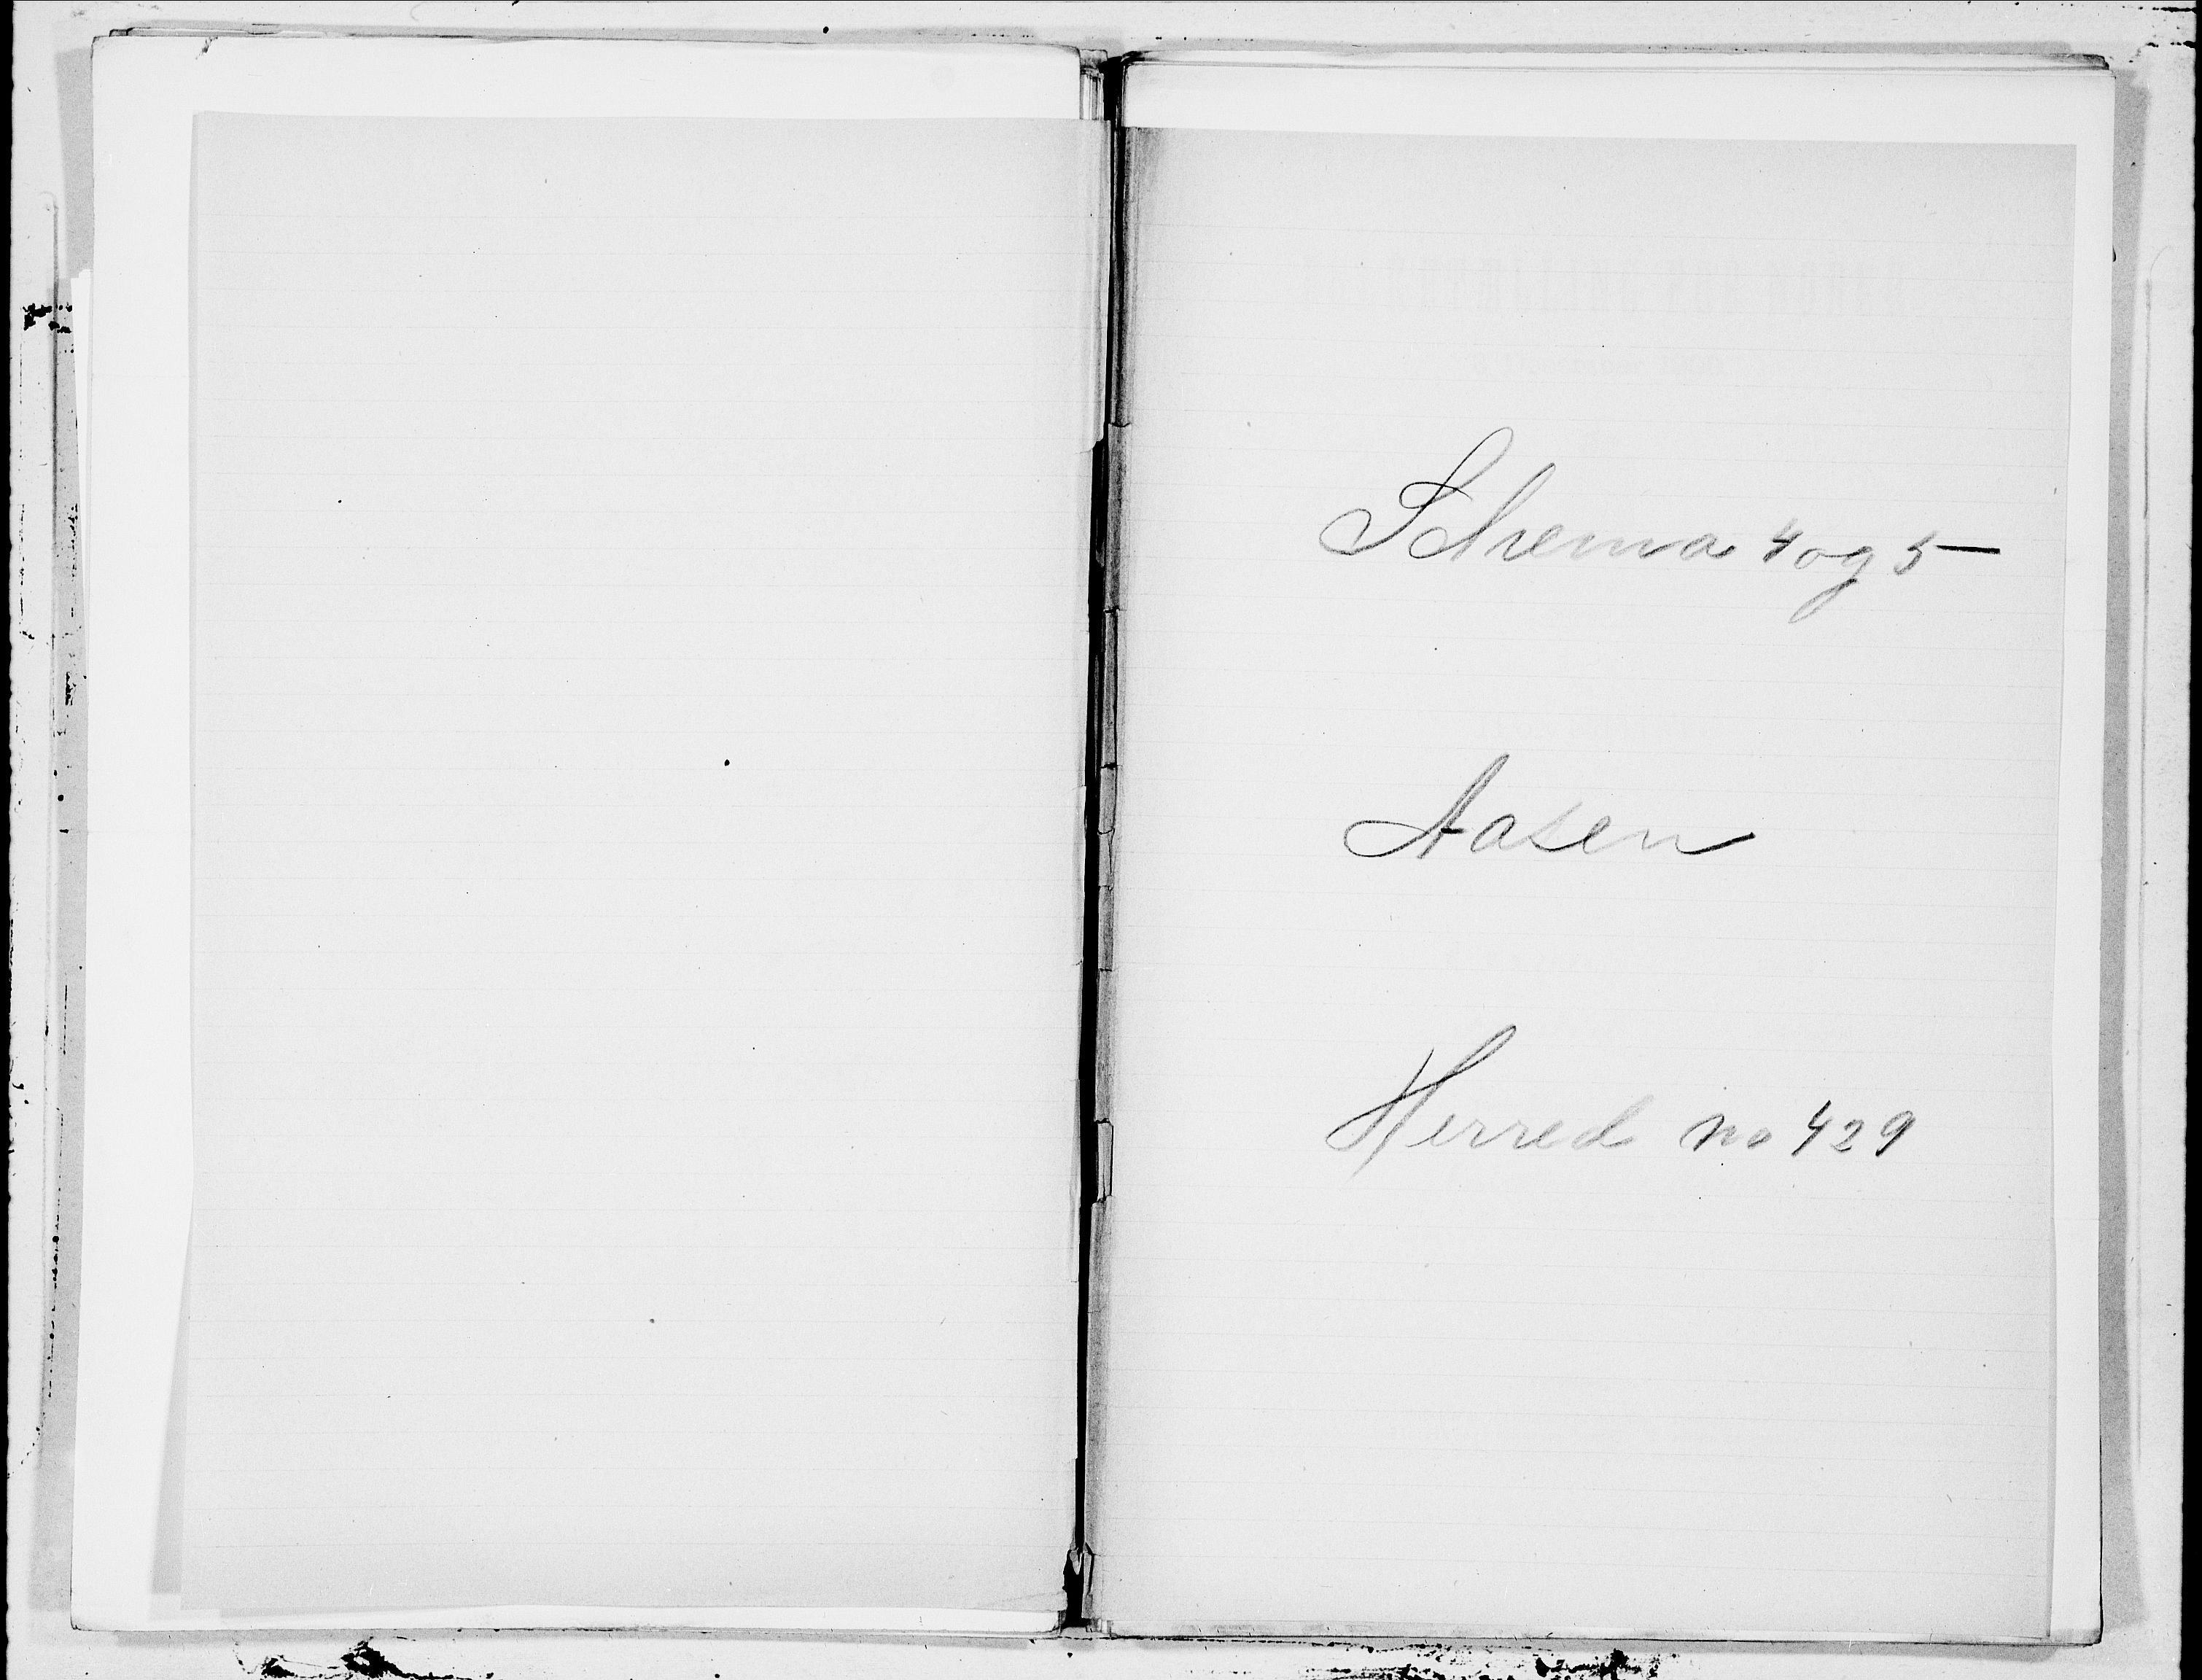 Schema 4 og 5
Aasen
Herred no 429